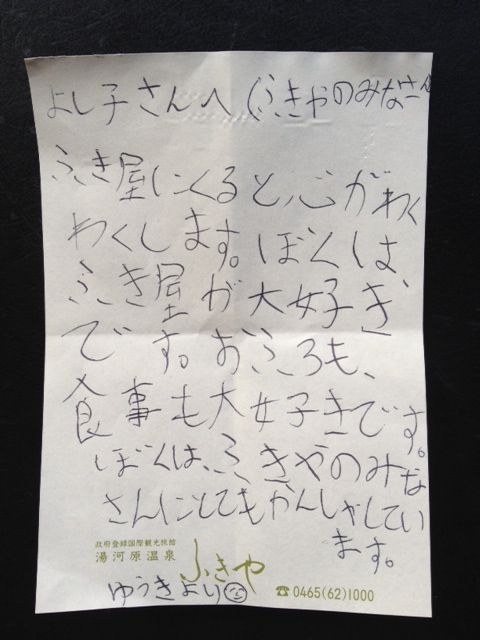 よし子さんへ (ふきやのみなさん
ふき屋にくると心がわく
わくします。ぼくは
ふき屋が大好き
です。おふろも、
食事も大好きです。
ぼくは、ふきやのみな
さんにとてもかんしゃしてい
ます。
政府登録国際観光旅館
湯河原温泉 ふきや
ゆうきより
☎0465(62)1000